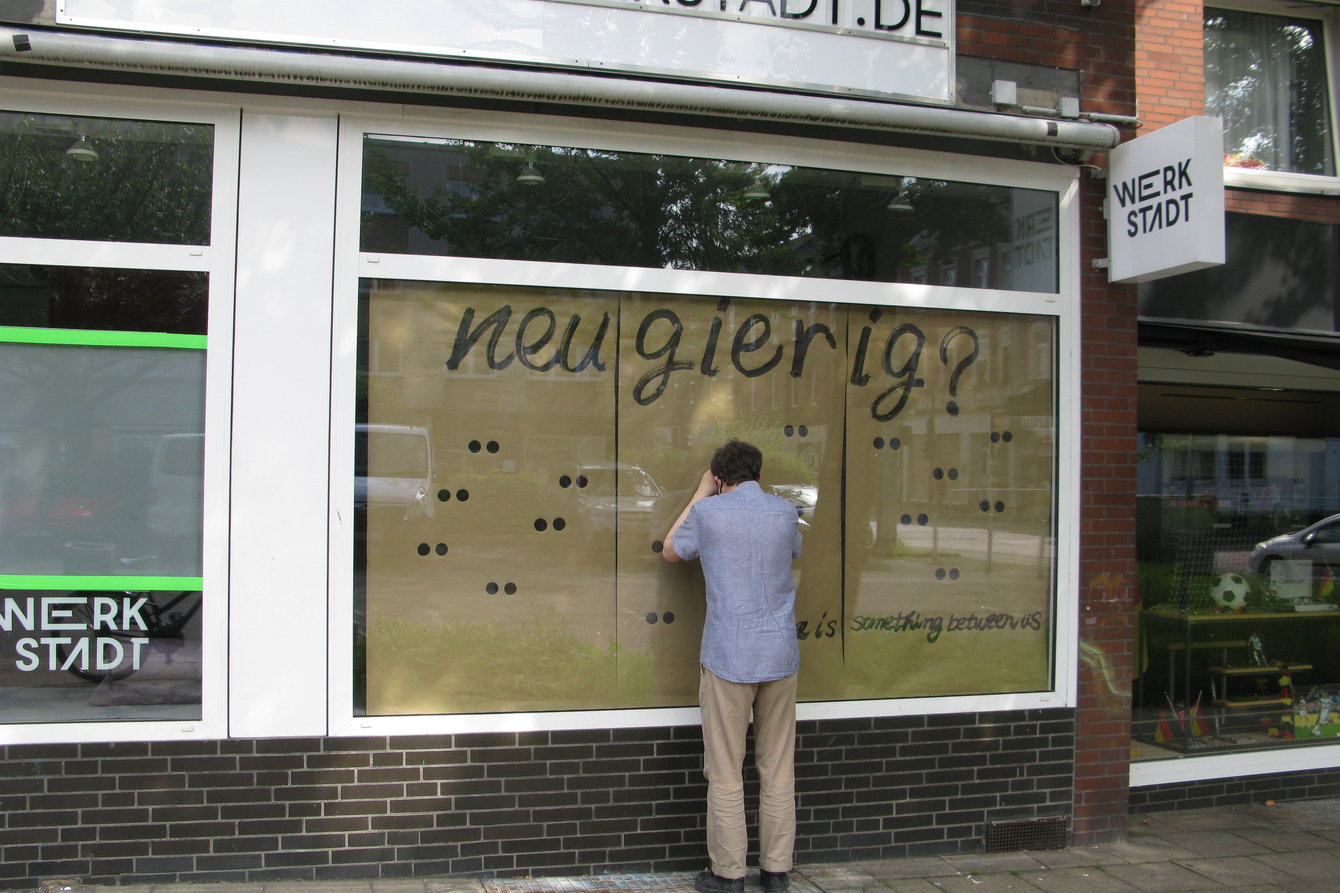 STADT.DE
WERK
STADT
neugierig?
is something between us
WERK
STADT